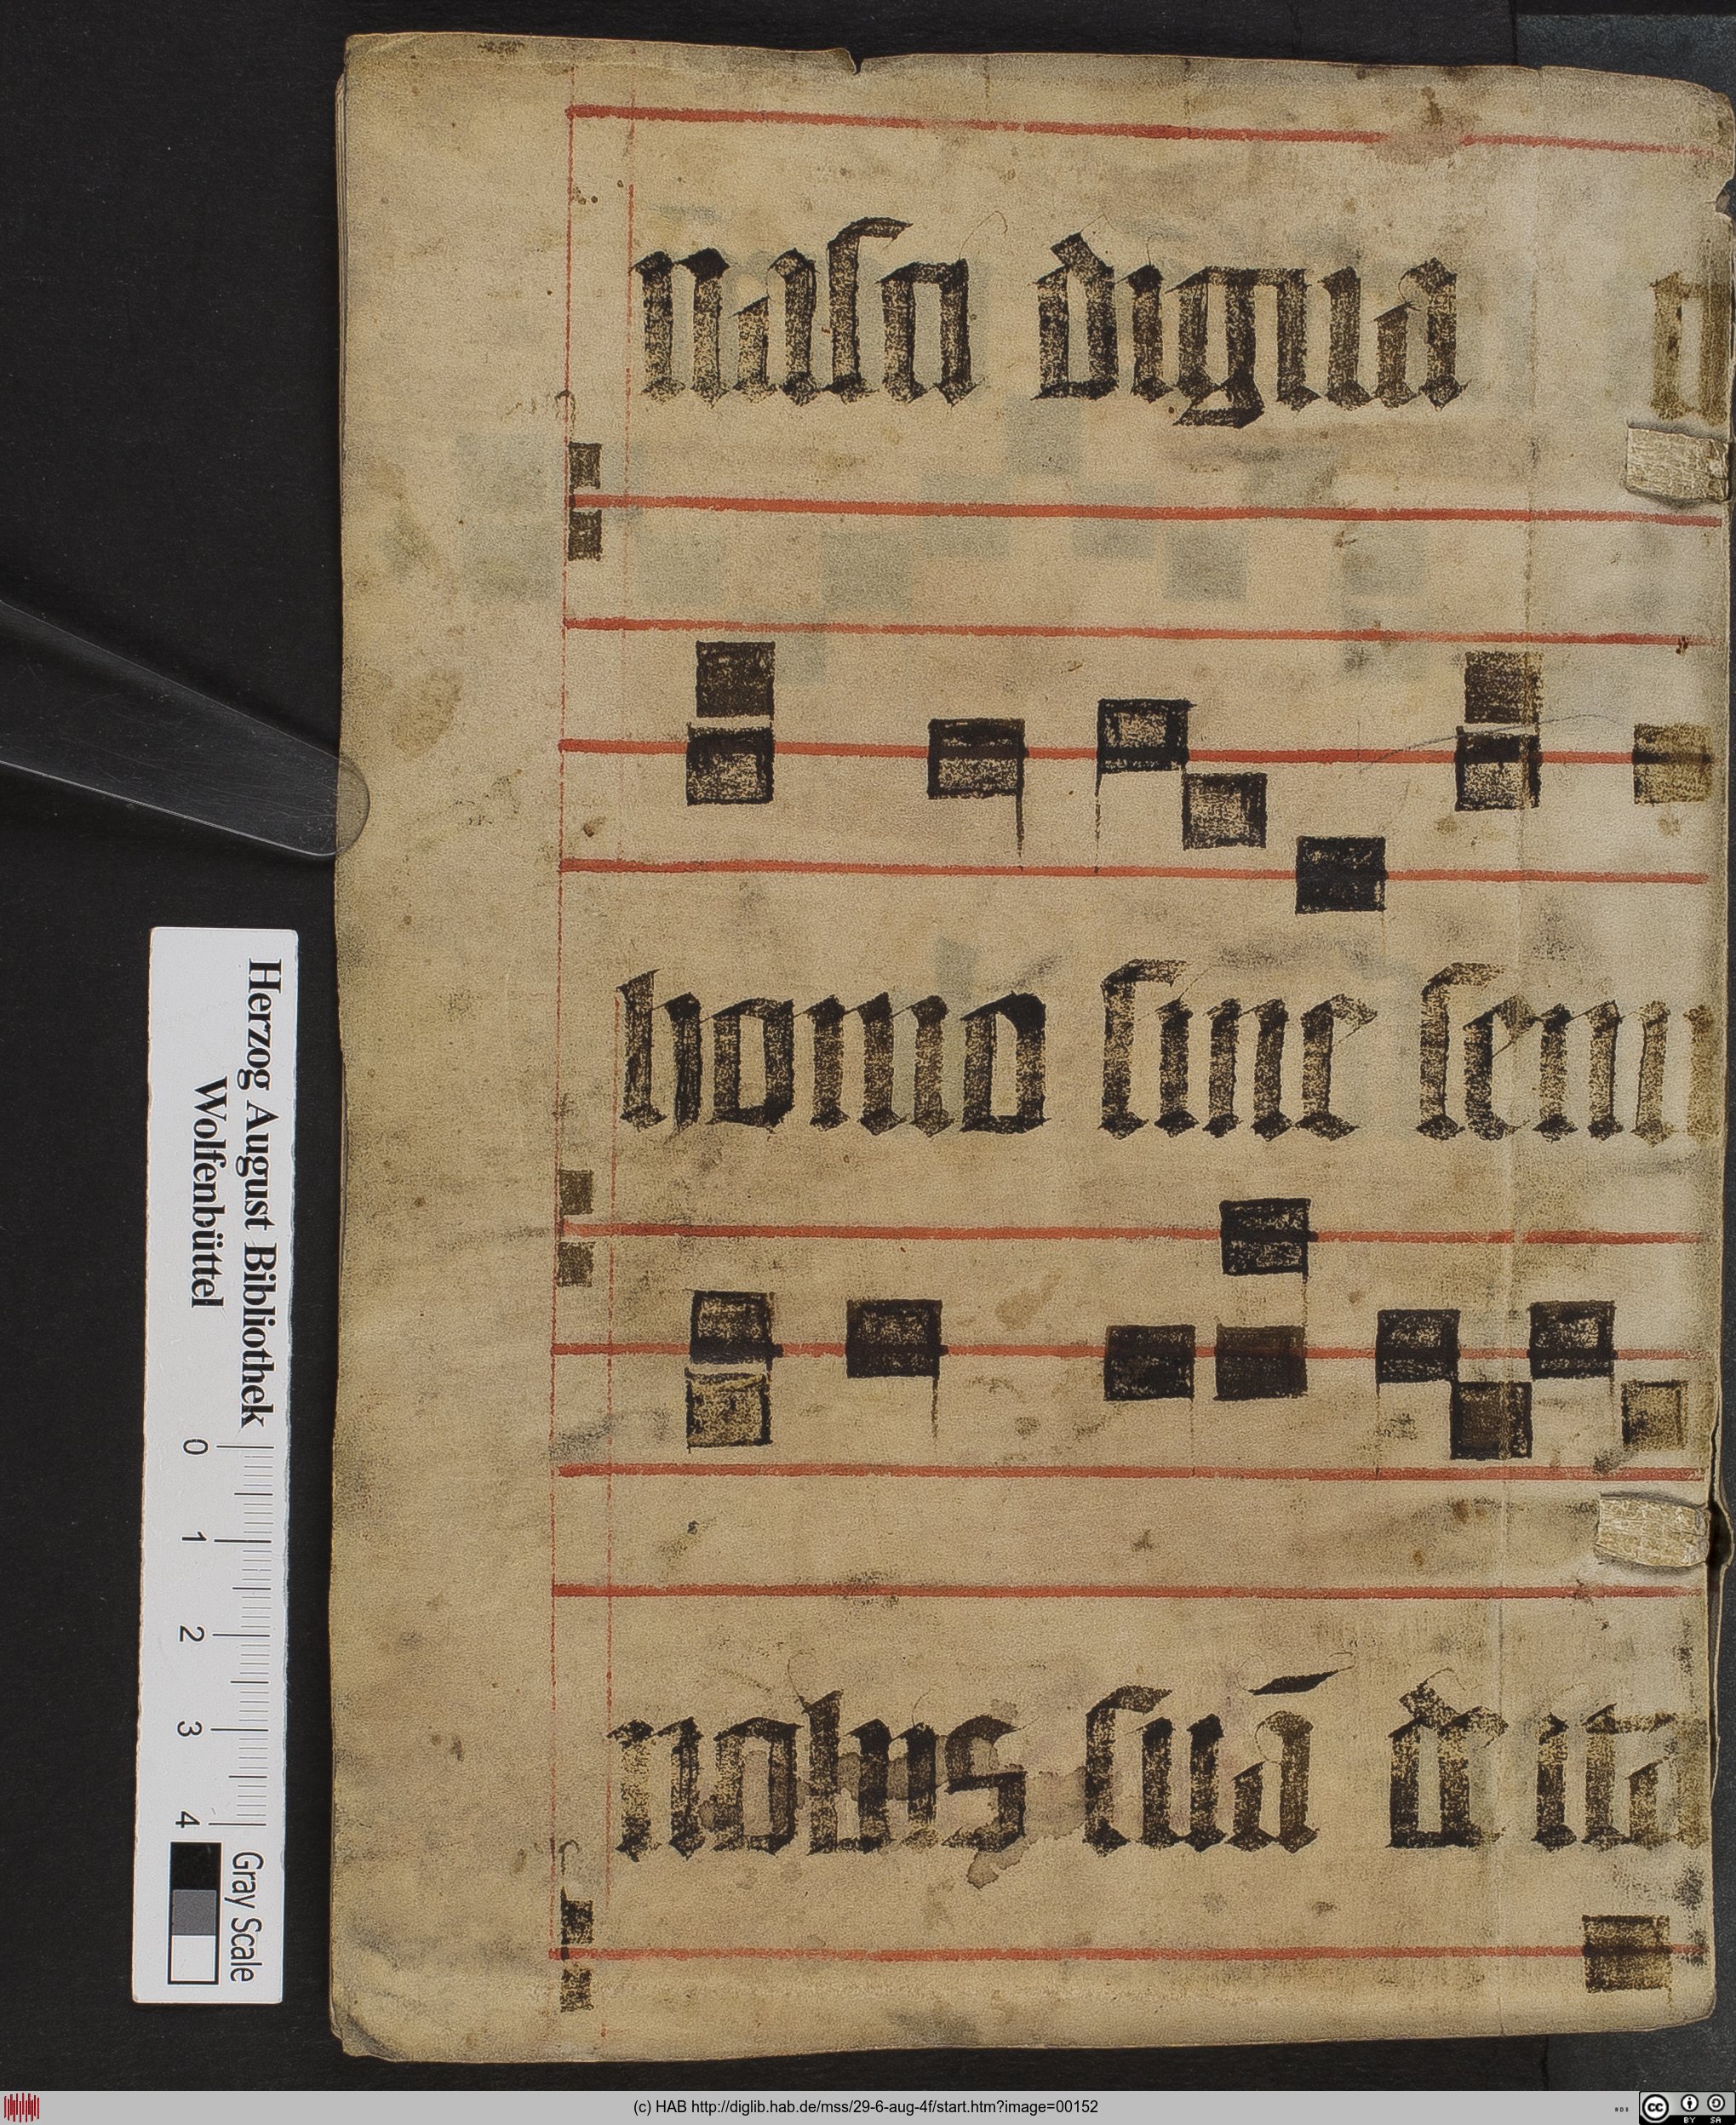 nasci digna
homo sine semi
nobis suā deita
Herzog August Bibliothek
Wolfenbüttel
0 1 2 3 4
Gray Scale
(c) HAB http://diglib.hab.de/mss/29-6-aug-4f/start.htm?image=00152
cc BY SA